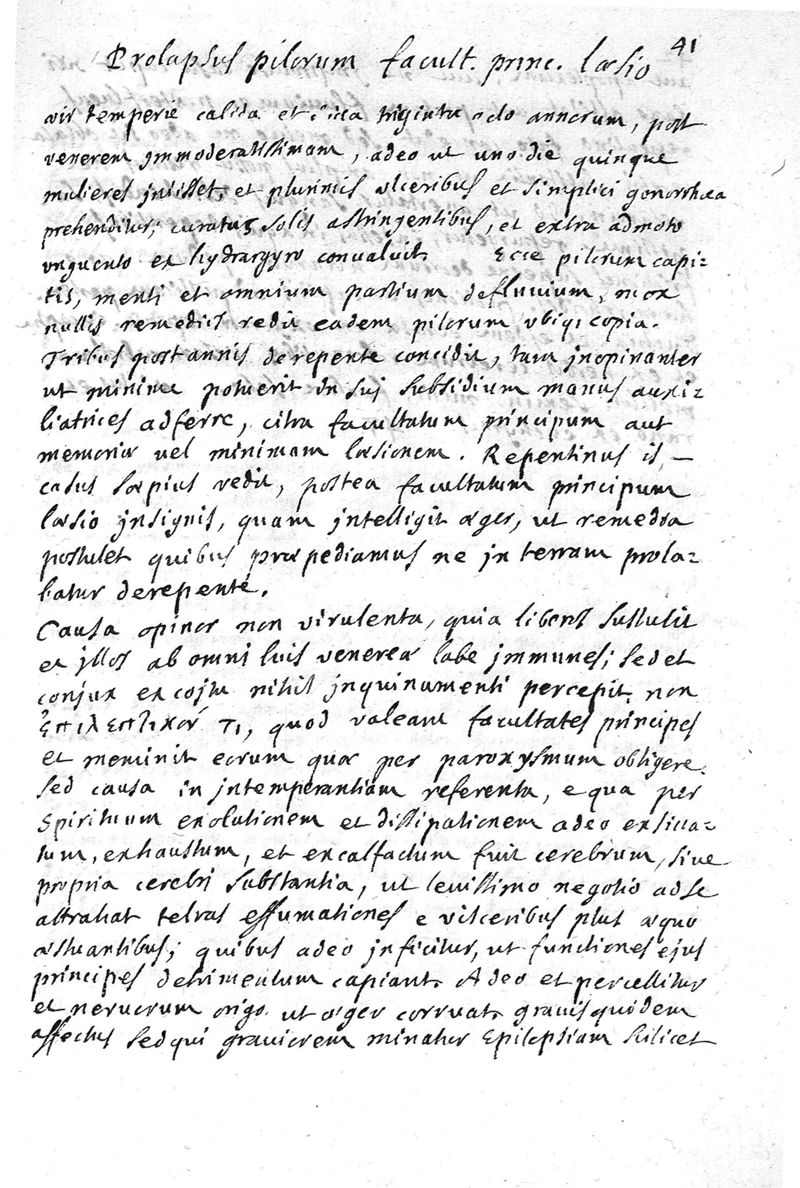 41
Prolapsus pilorum facult. princ. læsio
vir temperie calida et circa triginta octo annorum, post
venerem jmmoderatissimam, adeo ut uno die quinque
mulieres jnisset, et plurimis ulceribus et simplici gonorrhæa
prehenditur; curatus solis astringentibus, et extra admoto
vnguento ex hydrargyro convaluit. Ecce pilorum capi=
tis, menti et omnium partium defluuium, mox
nullis remediis rediit eadem pilorum vbiqɜ copia.
Tribus post annis derepente concidit, tam jnopinanter
ut minime potuerit in sui subsidium manus auxi=
liatrices adferre, citra facultatum principum aut
memoriæ vel minimam læsionem. Repentinus is -
casus sæpius rediit, postea facultatum principum
læsio jnsignis, quam jntelligit æger, ut remedia
postulet quibus præpediamus ne jn terram prola=
batur derepente.
Causa opinor non virulenta, quia liberos sustulit
ex jllos ab omni luis venereæ labe jmmunes; sed et
conjux ex cojtu nihil jnquinamenti percepit. non
ἐπιλεπτικόν τι, quod valeant facultates principes
et meminit eorum quæ per paroxysmum obtigere.
sed causa in jntemperantiam referenta, e qua per
spirituum exolutionem et dissipationem adeo exsicca=
tum, exhaustum, et excalfactum fuit cerebrum, siue
propria cerebri substantia, ut leuissimo negotio ad se
attrahat tetras effumationes e visceribus plus æquo
æstuantibus; quibus adeo jnficitur, ut functiones ejus
principes detrimentum capiant. Adeo et percellitur
et neruorum origo ut æger corruat. grauis quidem
affectus sed qui grauiorem minatur Epilepsiam scilicet